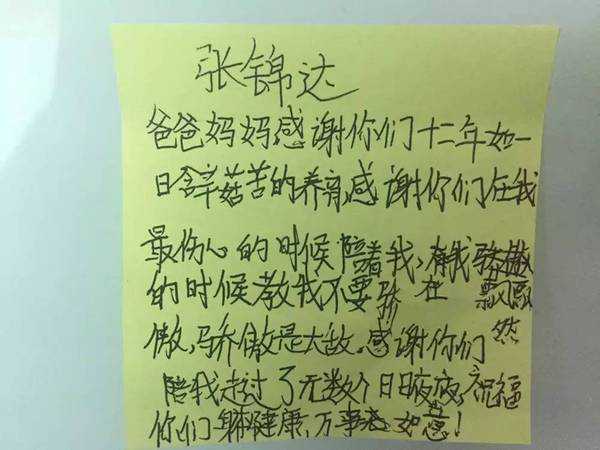 张锦达
爸爸妈妈感谢你们十二年如一
日含辛菇苦的养育,感谢你们在我
最伤心的时候陪着我,在我骄傲
的时候教我不要骄 在 飘飘
然
傲,骄傲是大敌.感谢你们
陪我走过了无数个日日夜夜,祝福
你们身体健康,万事如意!